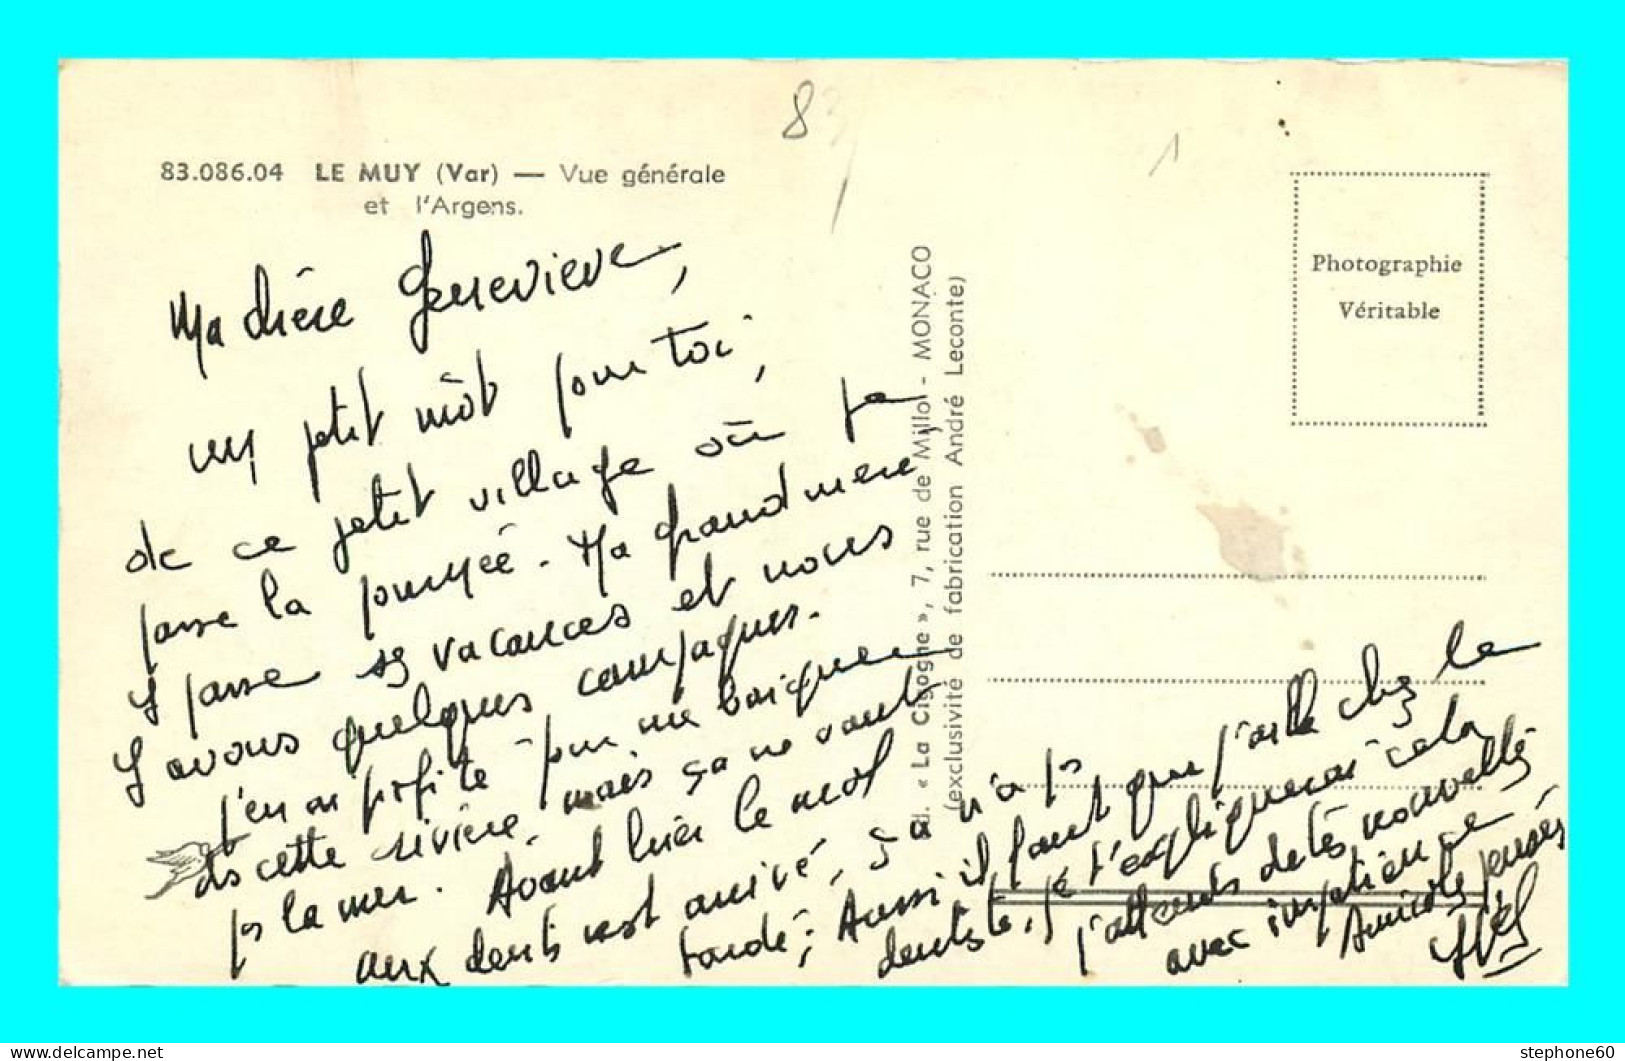 8
1
83.086.04 LE MUY (Var) — Vue générale
et l'Argens.
Ma chère Geneviève,
un petit mot pour toi,
de ce petit village où je
passe la journée. Ma grand mère
y passe ses vacances et nous
y avons quelques campagnes.
j'en ai profité pour me baigner
ds cette rivière, mais ça ne vaut
ps la mer. Avant hier le mal
aux dents est arrivé, ça n'a ps
tardé; Aussi il faut que j'aille chez le
dentiste, je t'expliquerai cela
j'attends de tes nouvelles
avec impatience
Amicales pensées
Yves
Ed. « La Cigogne », 7, rue de Millo - MONACO
(exclusivité de fabrication André Leconte)
Photographie
Véritable
stephone60